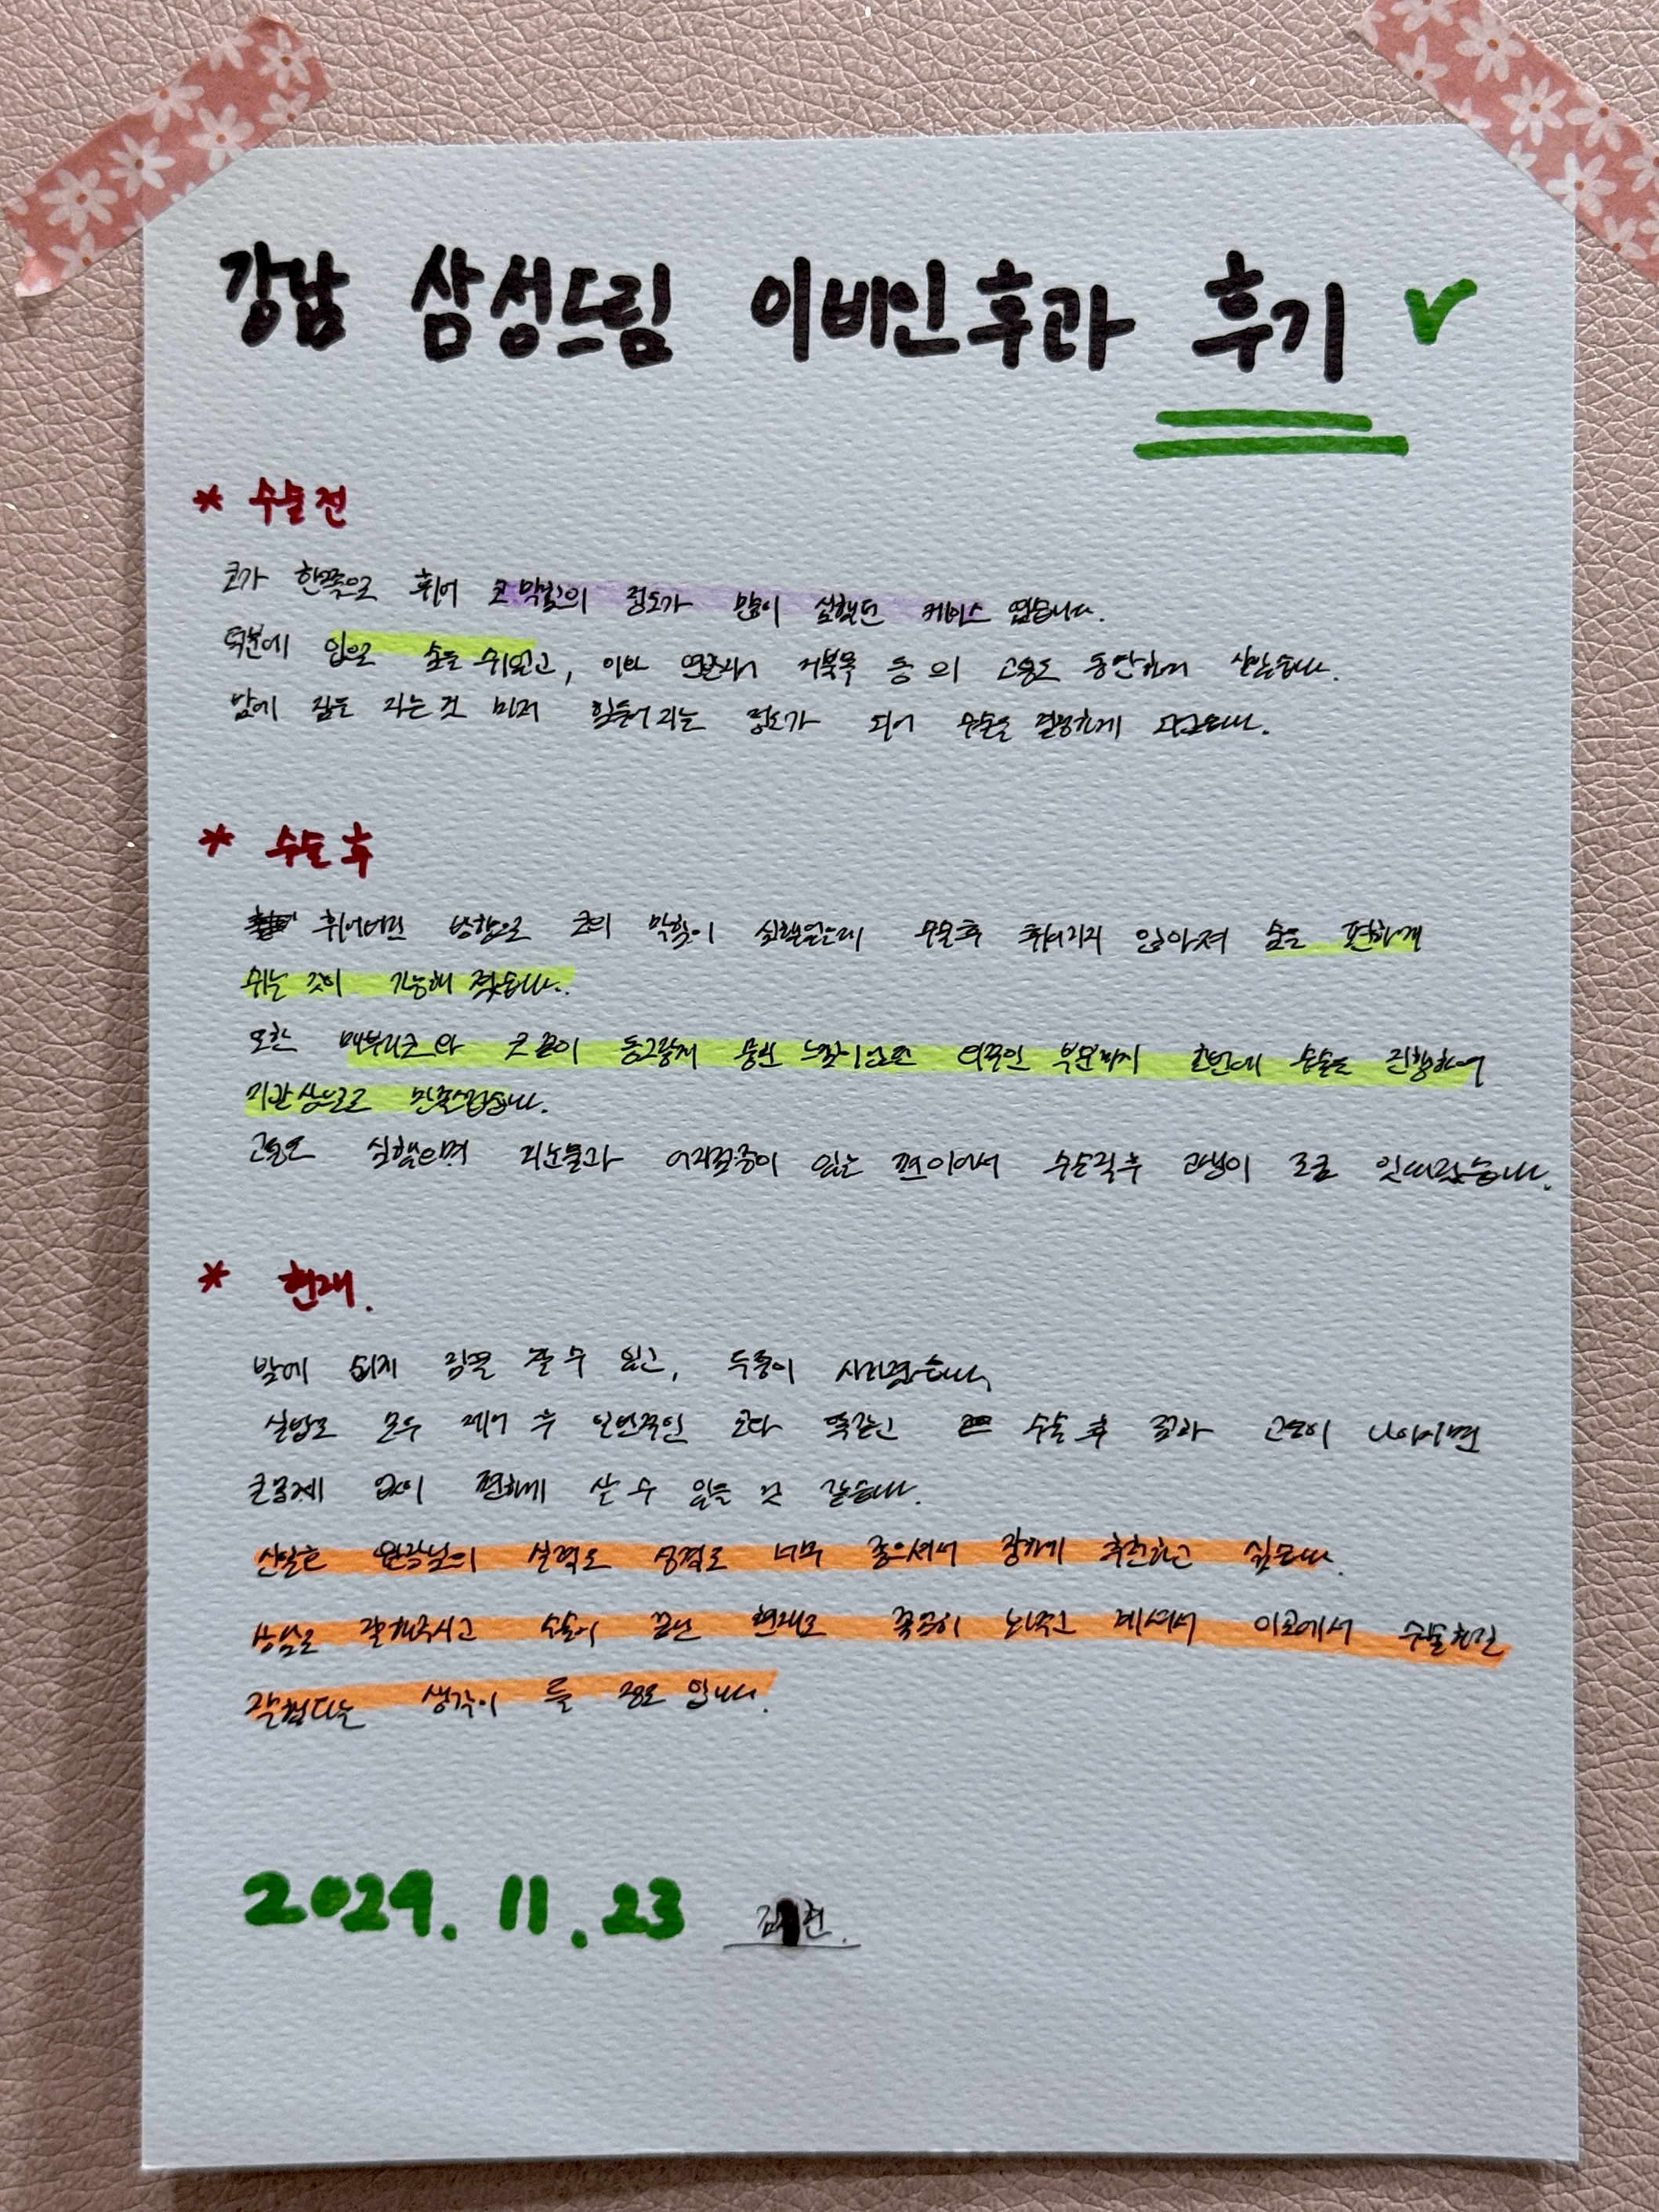 강남 삼성드림 이비인후과 후기
* 수술전
코가 한쪽으로 휘어 코막힘의 정도가 많이 심했던 케이스 였습니다.
덕분에 입으로 숨을 쉬었고, 이와 연관되어 거북목 등의 고통도 동반하며 살았습니다.
밤에 잠을 자는것 마저 힘들어지는 정도가 되어 수술을 결정하게 되었습니다.
* 수술후
휘어버린 방향으로 코의 막힘이 심했었는데 수술후 휘어지지 않아져 숨을 편하게
쉬는 것이 가능해 졌습니다.
또한 매부리코와 코끝이 동그랗게 뭉친 느낌이었던 외적인 부분까지 한번에 수술을 진행하여
미관상으로도 만족스럽습니다.
고통도 심했으며 피눈물과 어지럼증이 있는 편이어서 수술직후 고생이 조금 잇따랐습니다.
* 현재.
밤에 쉽게 잠을 잘 수 있고, 두통이 사라졌습니다.
실밥도 모두 제거 후 일반적인 코와 똑같고 수술 후 고통이 나아지면
큰문제 없이 편하게 살 수 있을 것 같습니다.
신일호 원장님의 실력도 성격도 너무 좋으셔서 강하게 추천하고 싶습니다.
상담도 잘해주시고 수술이 끝난 현재도 꼼꼼히 봐주고 계셔서 이곳에서 수술하길
잘했다는 생각이 들 정도 입니다.
2024. 11. 23